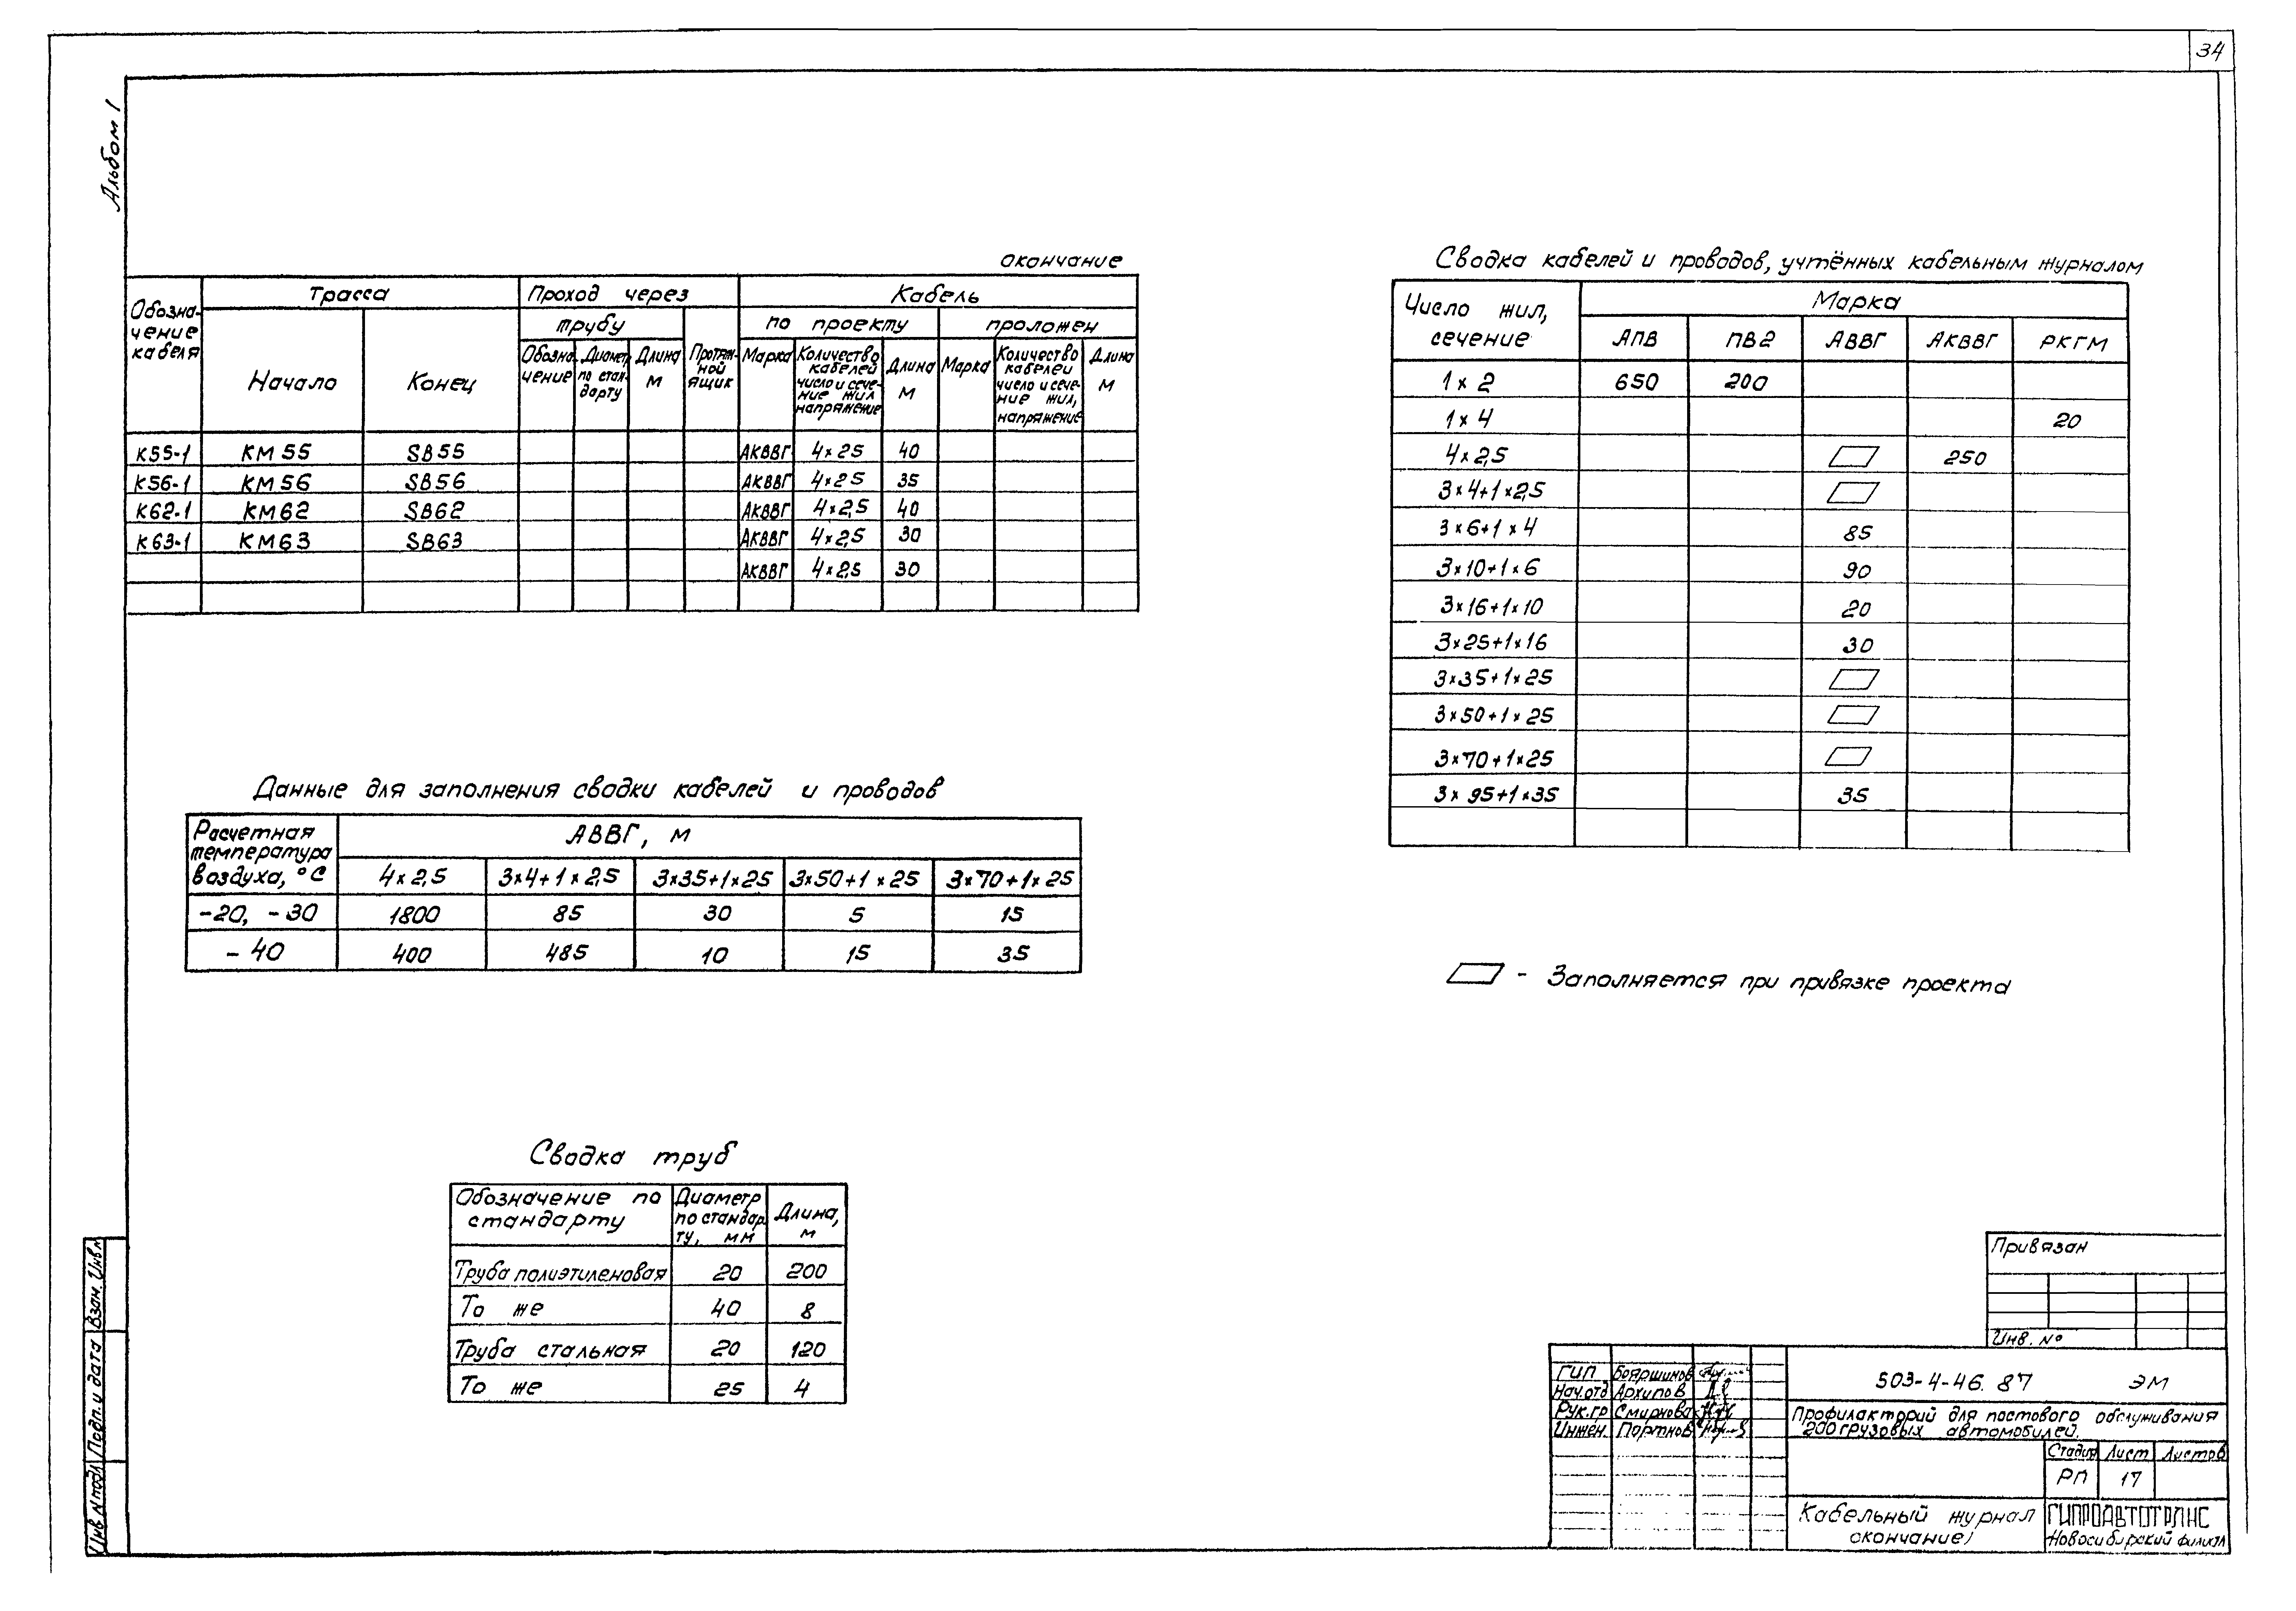 34
Альбом 1
окончание
Обозна-
чение
кабеля
Трасса
Начало
Конец
Проход через
трубу
Обозна
чение
Диамет,
по стан-
дарту
Длина
м
Протяж-
ной
ящик
Кабель
по проекту
проложен
Марка
Количество
кабелей
число и сече-
ние жил
напряжение
Длина
м
Марка
Количество
кабелей
число и сече-
ние жил,
напряжение
Длина
м
К55-1 КМ55 SB55 АКВВГ 4×25 40
К56-1 КМ56 SB56 АКВВГ 4×25 35
К62-1 КМ62 SB62 АКВВГ 4×2,5 40
К63-1 КМ63 SB63 АКВВГ 4×2,5 30
АКВВГ 4×2,5 30
Сводка кабелей и проводов, учтённых кабельным журналом
Число жил,
сечение
Марка
АПВ ПВ2 АВВГ АКВВГ РКГМ
1×2 650 200
1×4 20
4×2,5 250
3×4+1×2,5
3×6+1×4 85
3×10+1×6 90
3×16+1×10 20
3×25+1×16 30
3×35+1×25
3×50+1×25
3×70+1×25
3×95+1×35 35
Данные для заполнения сводки кабелей и проводов
Расчетная
температура
воздуха, °С
АВВГ, м
4×2,5 3×4+1×2,5 3×35+1×25 3×50+1×25 3×70+1×25
-20, -30 1800 85 30 5 15
- 40 400 485 10 15 35
- Заполняется при привязке проекта
Сводка труб
Обозначение по
стандарту
Диаметр
по стандар
ту, мм
Длина,
м
Труба полиэтиленовая 20 200
То же 40 8
Труба стальная 20 120
То же 25 4
Привязан
Инв. №
ГИП Бояршинов
Нач.отд Архипов
Рук.гр Смирнова
Инжен. Портнов
503-4-46.87 ЭМ
Профилакторий для постового обслуживания
200 грузовых автомобилей.
Стадия Лист Листов
РП 17
Кабельный журнал
окончание)
ГИПРОАВТОТРАНС
Новосибирский филиал
Инв. N подл Подп. и дата Взам. Инв.N